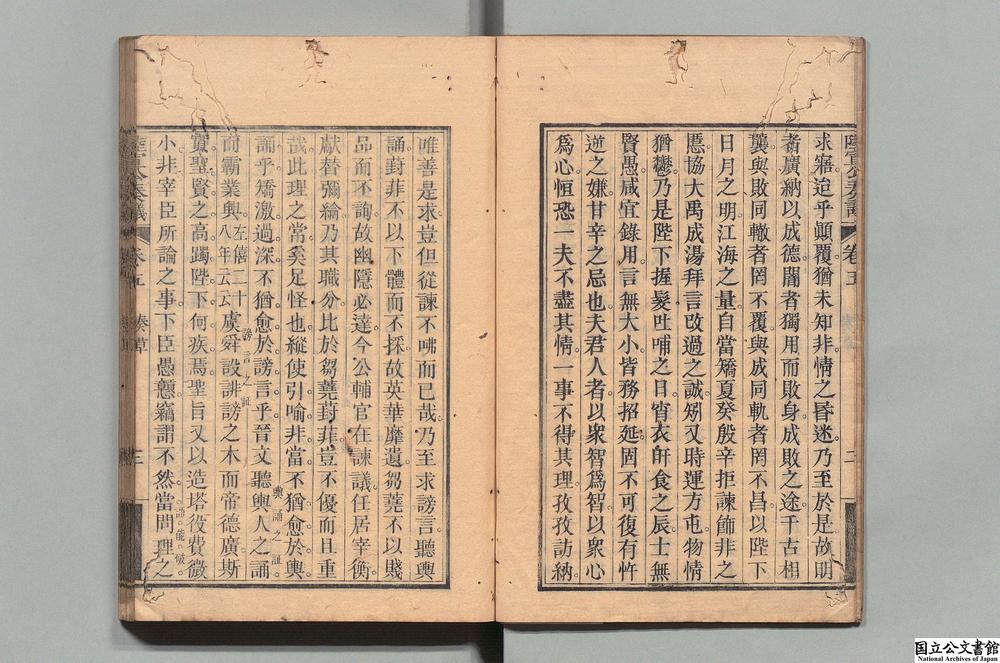 求寤追乎顛覆猶未知非情之昏迷乃至於是故明
者廣納以成德闇者獨用而敗身成敗之途千古相
襲與敗同轍者罔不覆與成同軌者罔不昌以陛下
日月之明江海之量自當矯夏癸殷辛拒諫飾非之
慝協大禹成湯拜言改過之誠矧又時運方屯物情
猶鬱乃是陛下握髮吐哺之日宵衣旰食之辰士無
賢愚咸宜錄用言無大小皆務招延固不可復有忤
逆之嫌甘辛之忌也夫君人者以衆智爲智以衆心
爲心恒恐一夫不盡其情一事不得其理孜孜訪納
陸宣公奏議 卷五 二
唯善是求豈但從諫不咈而已哉乃至求謗言聽輿
誦葑菲不以下體而不採故英華靡遺芻蕘不以賤
品而不詢故幽隱必達今公輔官在諫議任居宰衡
獻替彌綸乃其職分比於芻蕘葑菲豈不優而且重
哉此理之常奚足怪也縱使引喻非當不猶愈於輿
輿誦之証
誦乎矯激過深不猶愈於謗言乎晉文聽輿人之誦
謗言之証
而霸業興左僖二十八年云云虞舜設誹謗之木而帝德廣斯
實聖賢之高躅陛下何疾焉聖旨又以造塔役費微
語能破
小非宰臣所論之事下臣愚戇竊謂不然當問理之
陸宣公奏議 卷五 奏草 三
国立公文書館
National Archives of Japan